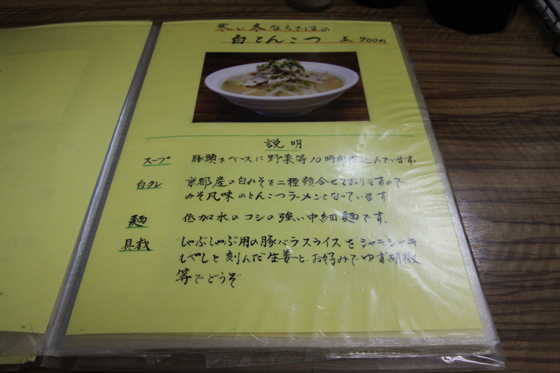 寒い冬ならではの
白とんこつ 並 700円
説明
スープ 豚頭をベースに野菜等10時間煮込んでいます。
白タレ 京都産の白みそを二種類合せておりますので
みそ風味のとんこつラーメンとなっています
麺 低加水のコシの強い中細麺です。
具材 しゃぶしゃぶ用の豚バラスライスをシャキシャキ
もやしと刻んだ生姜と、お好みでゆず胡椒
等でどうぞ